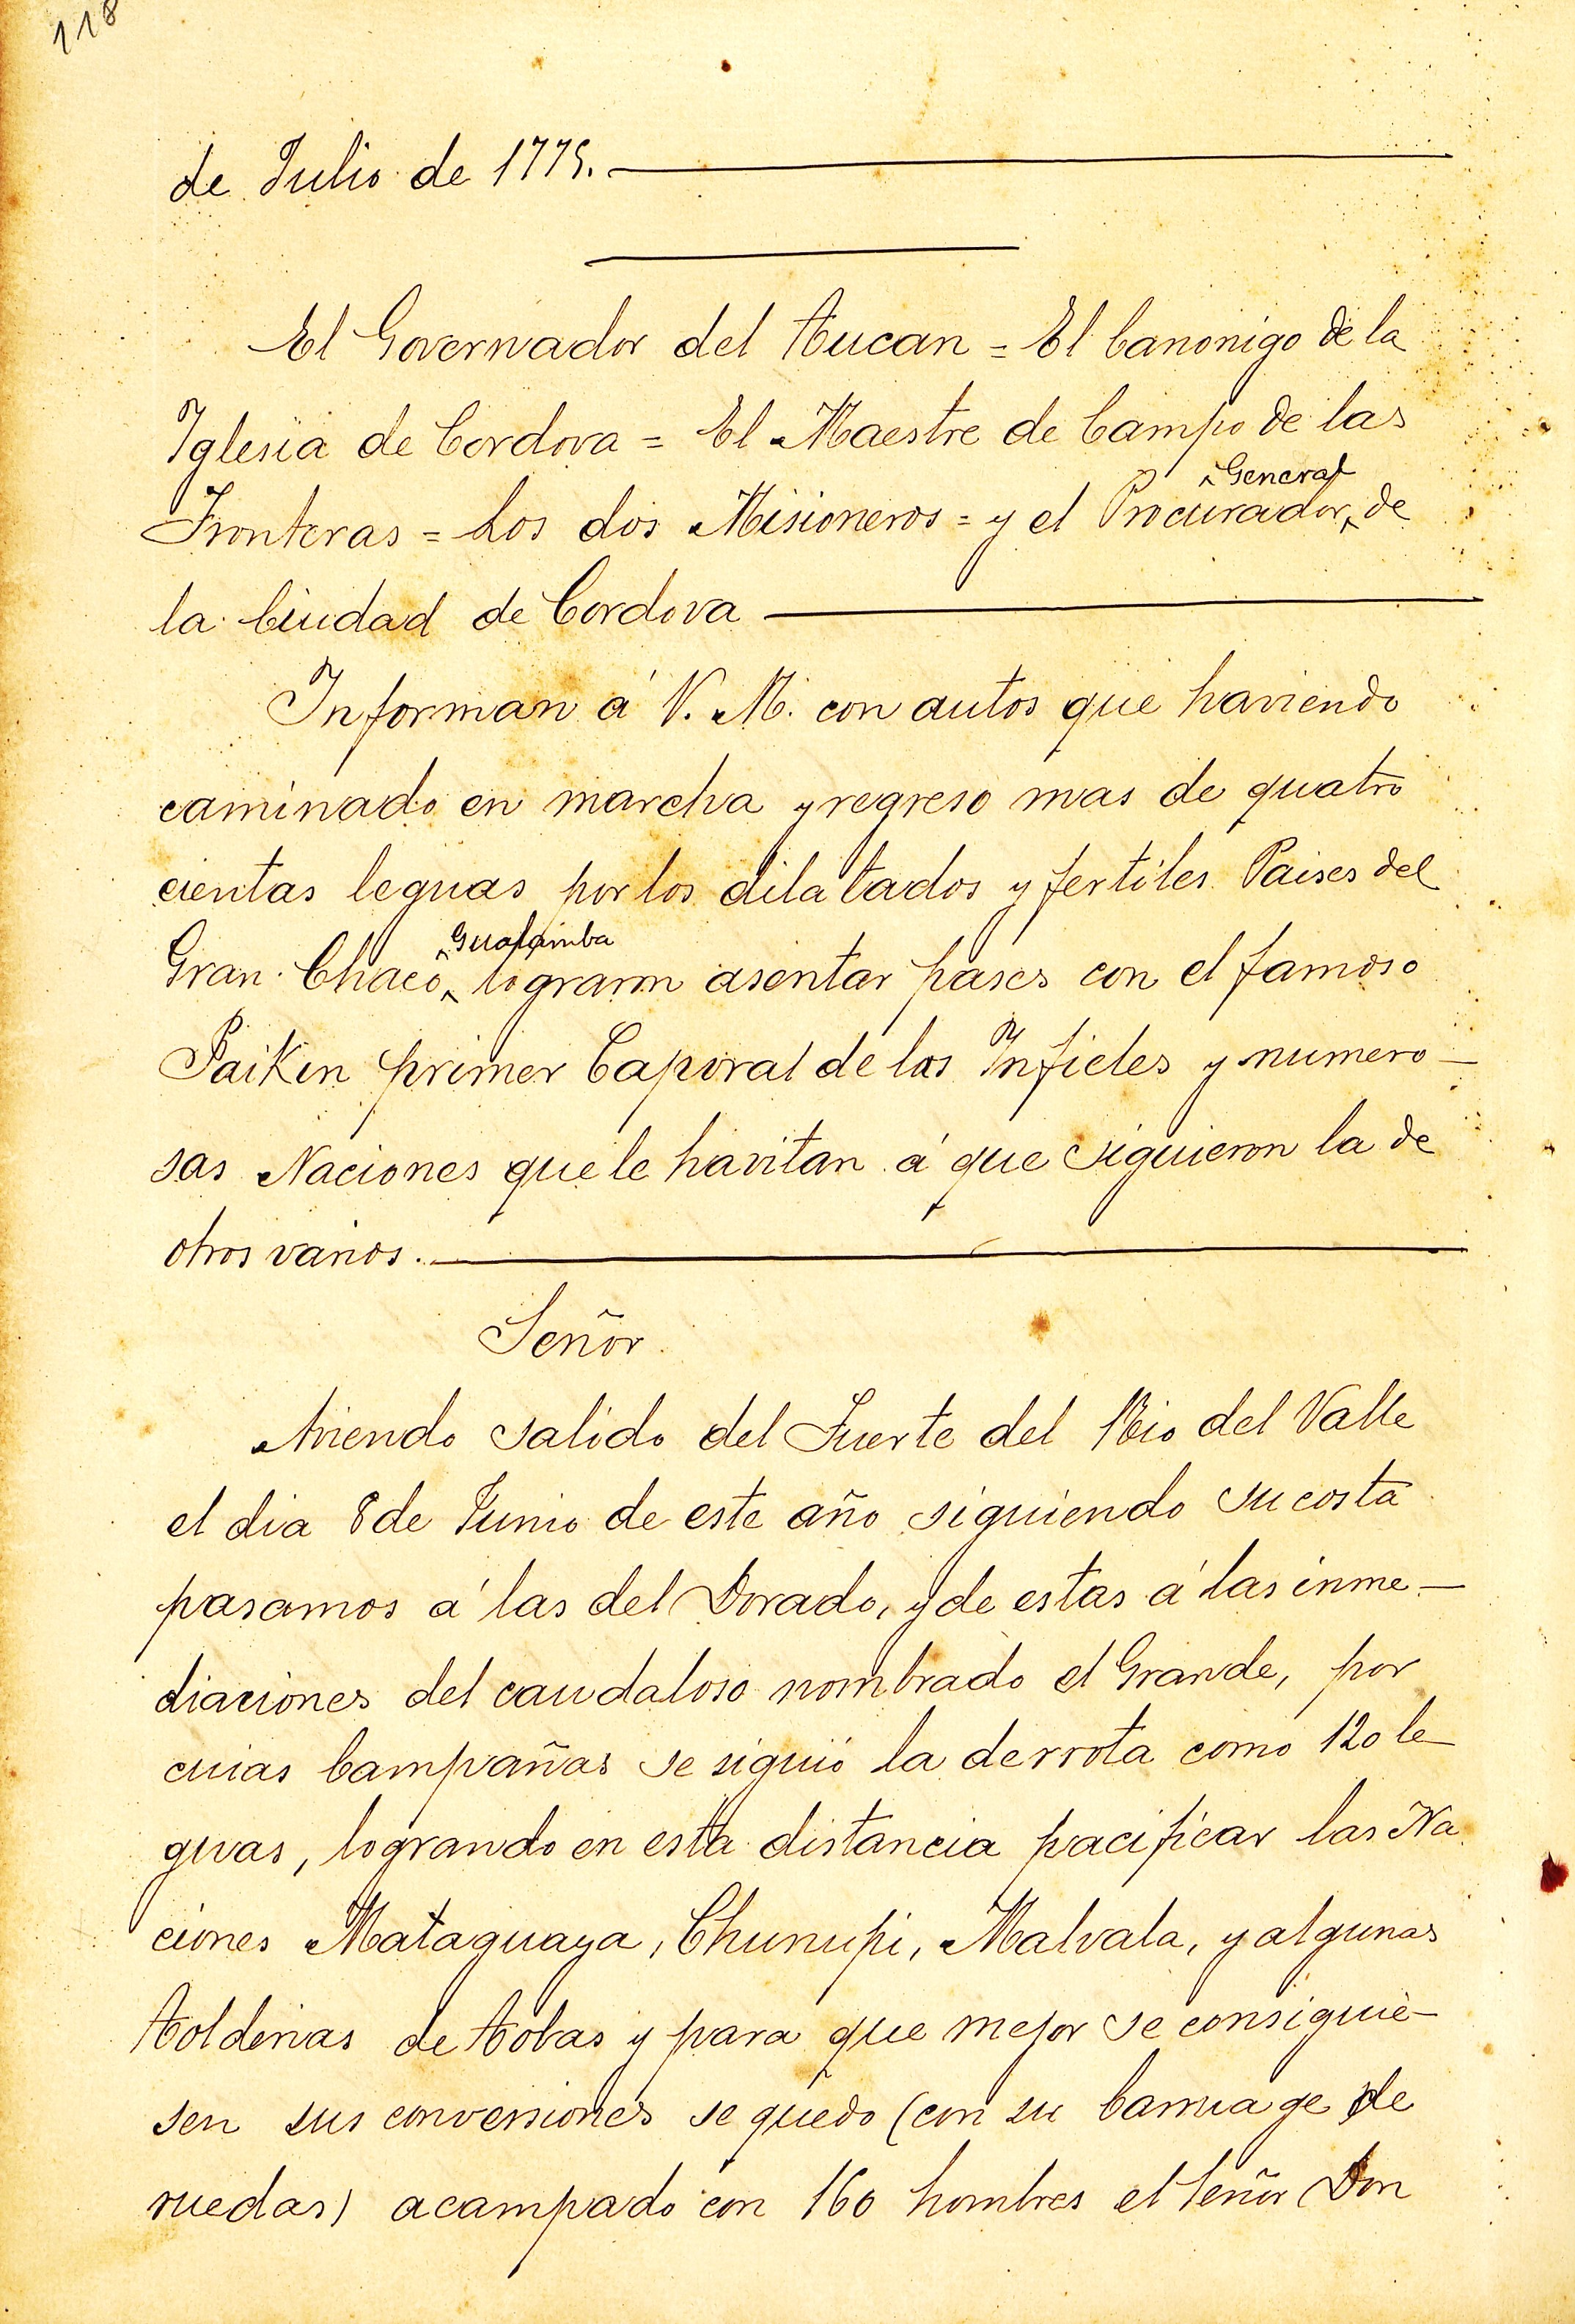 118
de Julio de 1775.
El Governador del Tucan = El Canonigo de la
Iglesia de Cordova = El Maestre de Campo de las
Fronteras = Los dos Misioneros = y el Procurador General de
la Ciudad de Cordova
Informan á V. M. con autos que haviendo
caminado en marcha y regreso mas de quatro
cientas leguas por los dilatados y fertiles Paises del
Gran Chaco Gualamba lograron asentar pases con el famoso
Paiken primer Caporal de los Infieles y numero-
sas Naciones que le havitan á que siguieron la de
otros varios.
Señor
Aviendo salido del Fuerte del Rio del Valle
el dia 8 de Junio de este año siguiendo su costa
pasamos á las del Dorado, y de estas á las inme-
diaciones del caudaloso nombrado el Grande, por
cuias Campañas se siguió la derrota como 120 le
guas, logrando en esta distancia pacificar las Na
ciones Mataguaya, Chunupi, Malvala, y algunas
Tolderias de Tobas y para que mejor se consiguie-
sen sus conversiones se quedo (con su Carruage de
ruedas) acampado con 160 hombres el Señor Don